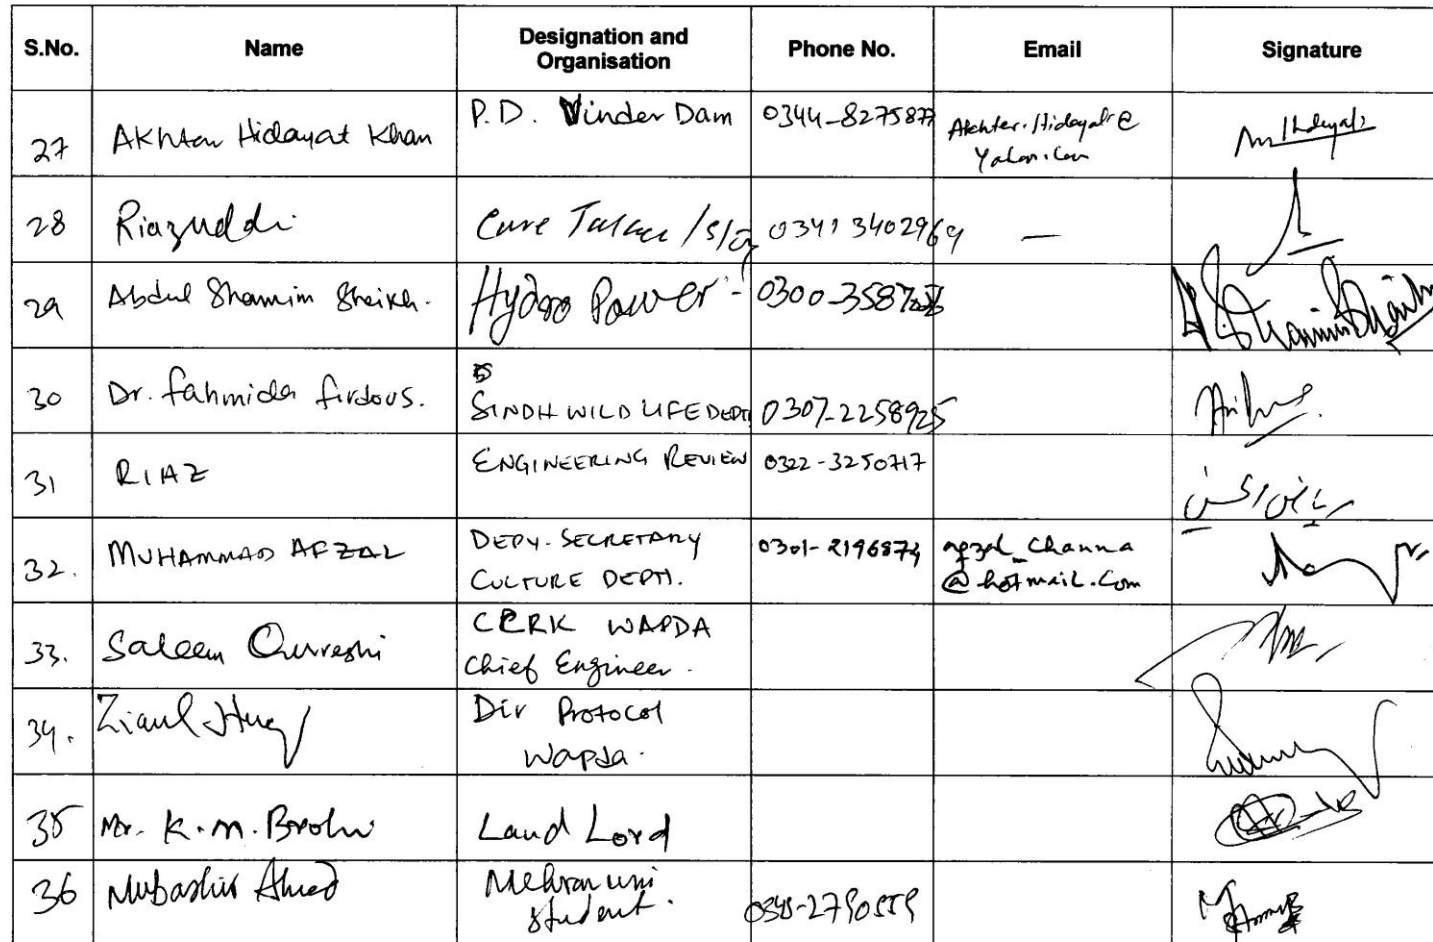 S.No. Name Designation and Organisation Phone No. Email Signature
27 Akhtar Hidayat Khan P.D. Vinder Dam 0344-8275877 Akhter.Hidayat@
28 Riazuddi Care Taker 0341 3402969 —
29 Abdul Shamim Sheikh. Hydro Power - 0300-3587
30 Dr. Fahmida firdous. SINDH WILD LIFE DEPTT 0307-2258925
31 RIAZ ENGINEERING REVIEW 0322-3250717
32. MUHAMMAD AFZAL DEPY. SECRETARY 0301-2196874 afzal_channa
CULTURE DEPTT. @hotmail.com
33. Saleem Qureshi CERK WAPDA
Chief Engineer.
34. Ziaul Huq Dir Protocol
Wapda.
35 Mr. K.M. Brohi Land Lord
36 Mubashir Ahmed Mehran uni
student.